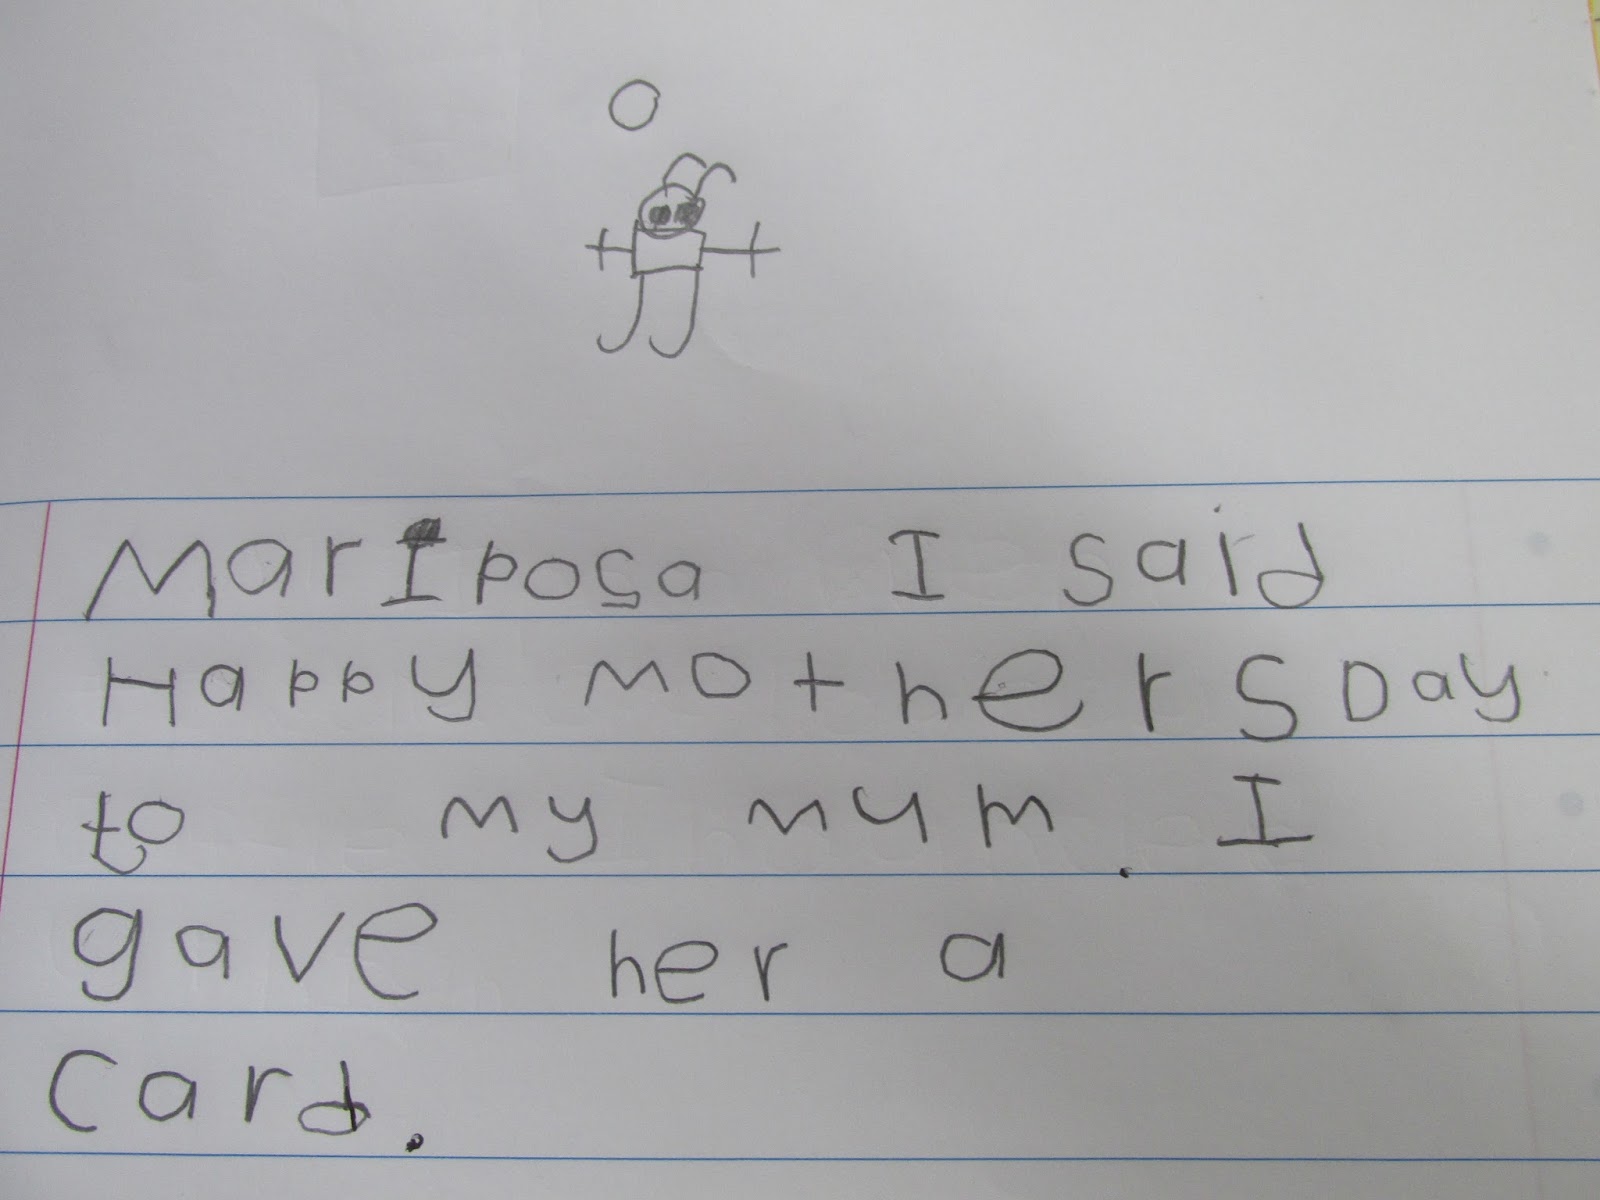 MarIposa I said
Happy mothers Day
to my mum. I
gave her a
Card.